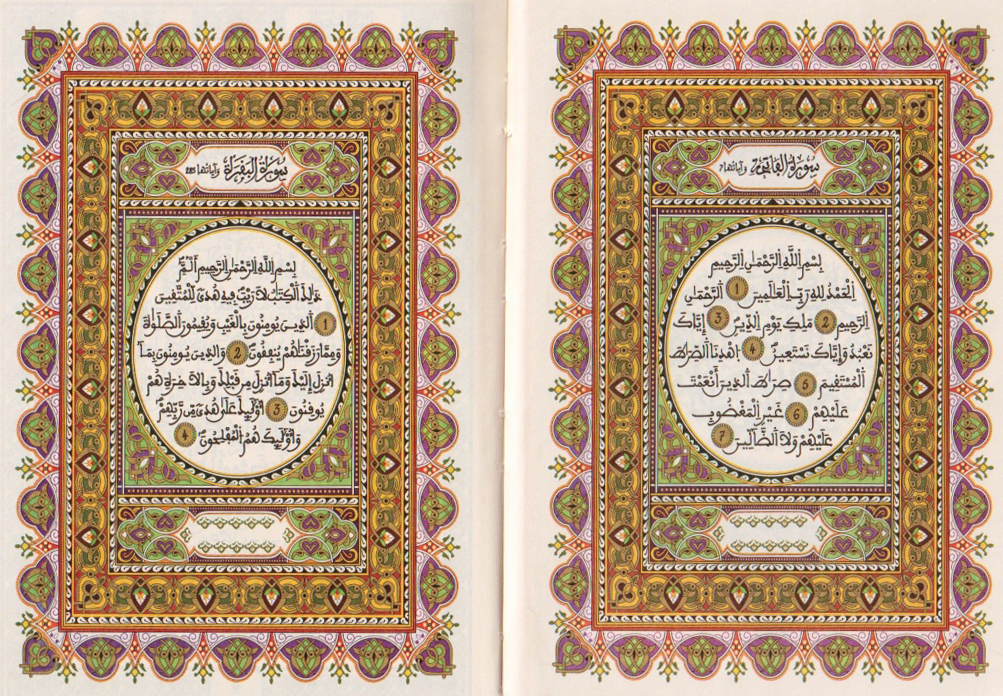 سُورَةُ الْفَاتِحَةِ وَآيَاتُهَا 7
بِسْمِ اِللَّهِ اِلرَّحْمَٰنِ اِلرَّحِيمِ
اِلْحَمْدُ لِلهِ رَبِّ اِلْعَٰلَمِينَ 1 اَلرَّحْمَٰنِ
اِلرَّحِيمِ 2 مَلِكِ يَوْمِ اِلدِّينِ 3 إِيَّاكَ
نَعْبُدُ وَإِيَّاكَ نَسْتَعِينُ 4 اَهْدِنَا اَلصِّرَٰطَ
اَلْمُسْتَقِيمَ 5 صِرَٰطَ اَلذِينَ أَنْعَمْتَ
عَلَيْهِمْ 6 غَيْرِ اِلْمَغْضُوبِ
عَلَيْهِمْ وَلَا اَلضَّآلِّينَ 7
سُورَةُ الْبَقَرَةِ وَآيَاتُهَا 285
بِسْمِ اِللَّهِ اِلرَّحْمَٰنِ اِلرَّحِيمِ أَلَٓمِّٓ
ذَٰلِكَ اَلْكِتَٰبُ لَا رَيْبَ فِيهِ هُدىً لِّلْمُتَّقِينَ
1 اَلذِينَ يُومِنُونَ بِالْغَيْبِ وَيُقِيمُونَ اَلصَّلَوٰةَ
وَمِمَّا رَزَقْنَٰهُمْ يُنفِقُونَ 2 وَالذِينَ يُومِنُونَ بِمَآ
أُنزِلَ إِلَيْكَ وَمَآ أُنزِلَ مِن قَبْلِكَ وَبِالَاخِرَةِ هُمْ
يُوقِنُونَ 3 أُوْلَٰٓئِكَ عَلَىٰ هُدىً مِّن رَّبِّهِمْ
وَأُوْلَٰٓئِكَ هُمُ اَلْمُفْلِحُونَ 4